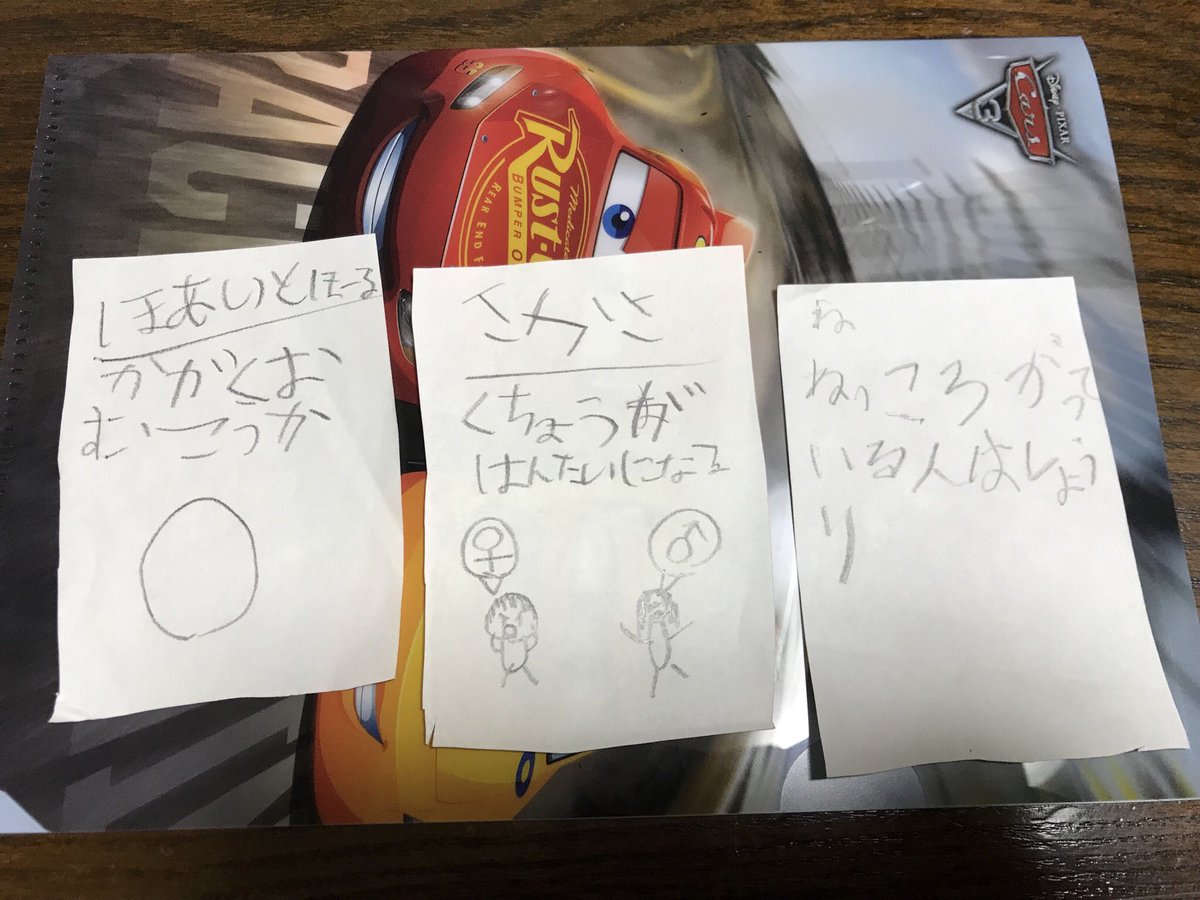 ほあいとほーる
かがくお
むこうか
さつき
くちょうが
はんたいになる
♀
♂
ね
ねっころがって
いる人はしょう
り
Rust-
Medicate
BUMPER O
REAR END F
Disney PIXAR
Cars
3